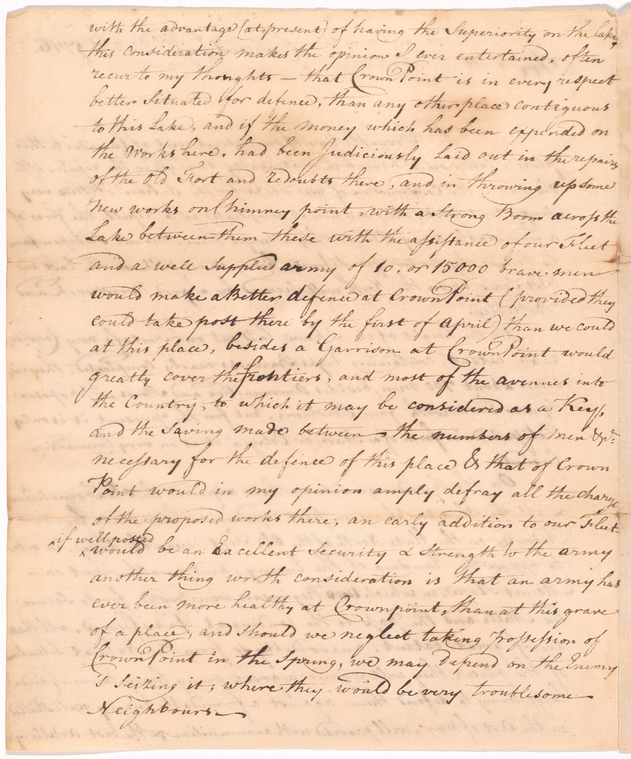 with the advantage (at present) of having the Superiority on the Lake,
this Consideration makes the opinion I ever entertained, often
recur to my thoughts — that Crown Point is in every respect
better Situated for defence, than any other place contiguous
to this Lake, and if the money which has been expended on
the Works here, had been Judiciously Laid out in the repairs
of the Old Fort and redoubts there, and in throwing up some
New works on Chimney point, with a Strong Boom across the
Lake between them these with the assistance of our Fleet
and a well Supplied army of 10. or 15000 brave men
would make a Better defence at Crown Point (provided they
could take post there by the first of April) than we could
at this place, besides a Garrison at Crown Point would
greatly cover the frontiers, and most of the avenues into
the Country, to which it may be considered as a Key,
and the Saving made between the numbers of men &ca.
necessary for the defence of this place & that of Crown
Point would in my opinion amply defray all the charge
of the proposed works there, an early addition to our Fleet
if well posted
would be an Excellent Security & Strength to the army
another thing worth consideration is that an army has
ever been more healthy at Crownpoint, than at this grave
of a place, and should we neglect taking Possession of
Crown Point in the Spring, we may depend on the Enemy
's Seizing it; where they would be very troublesome
Neighbours —